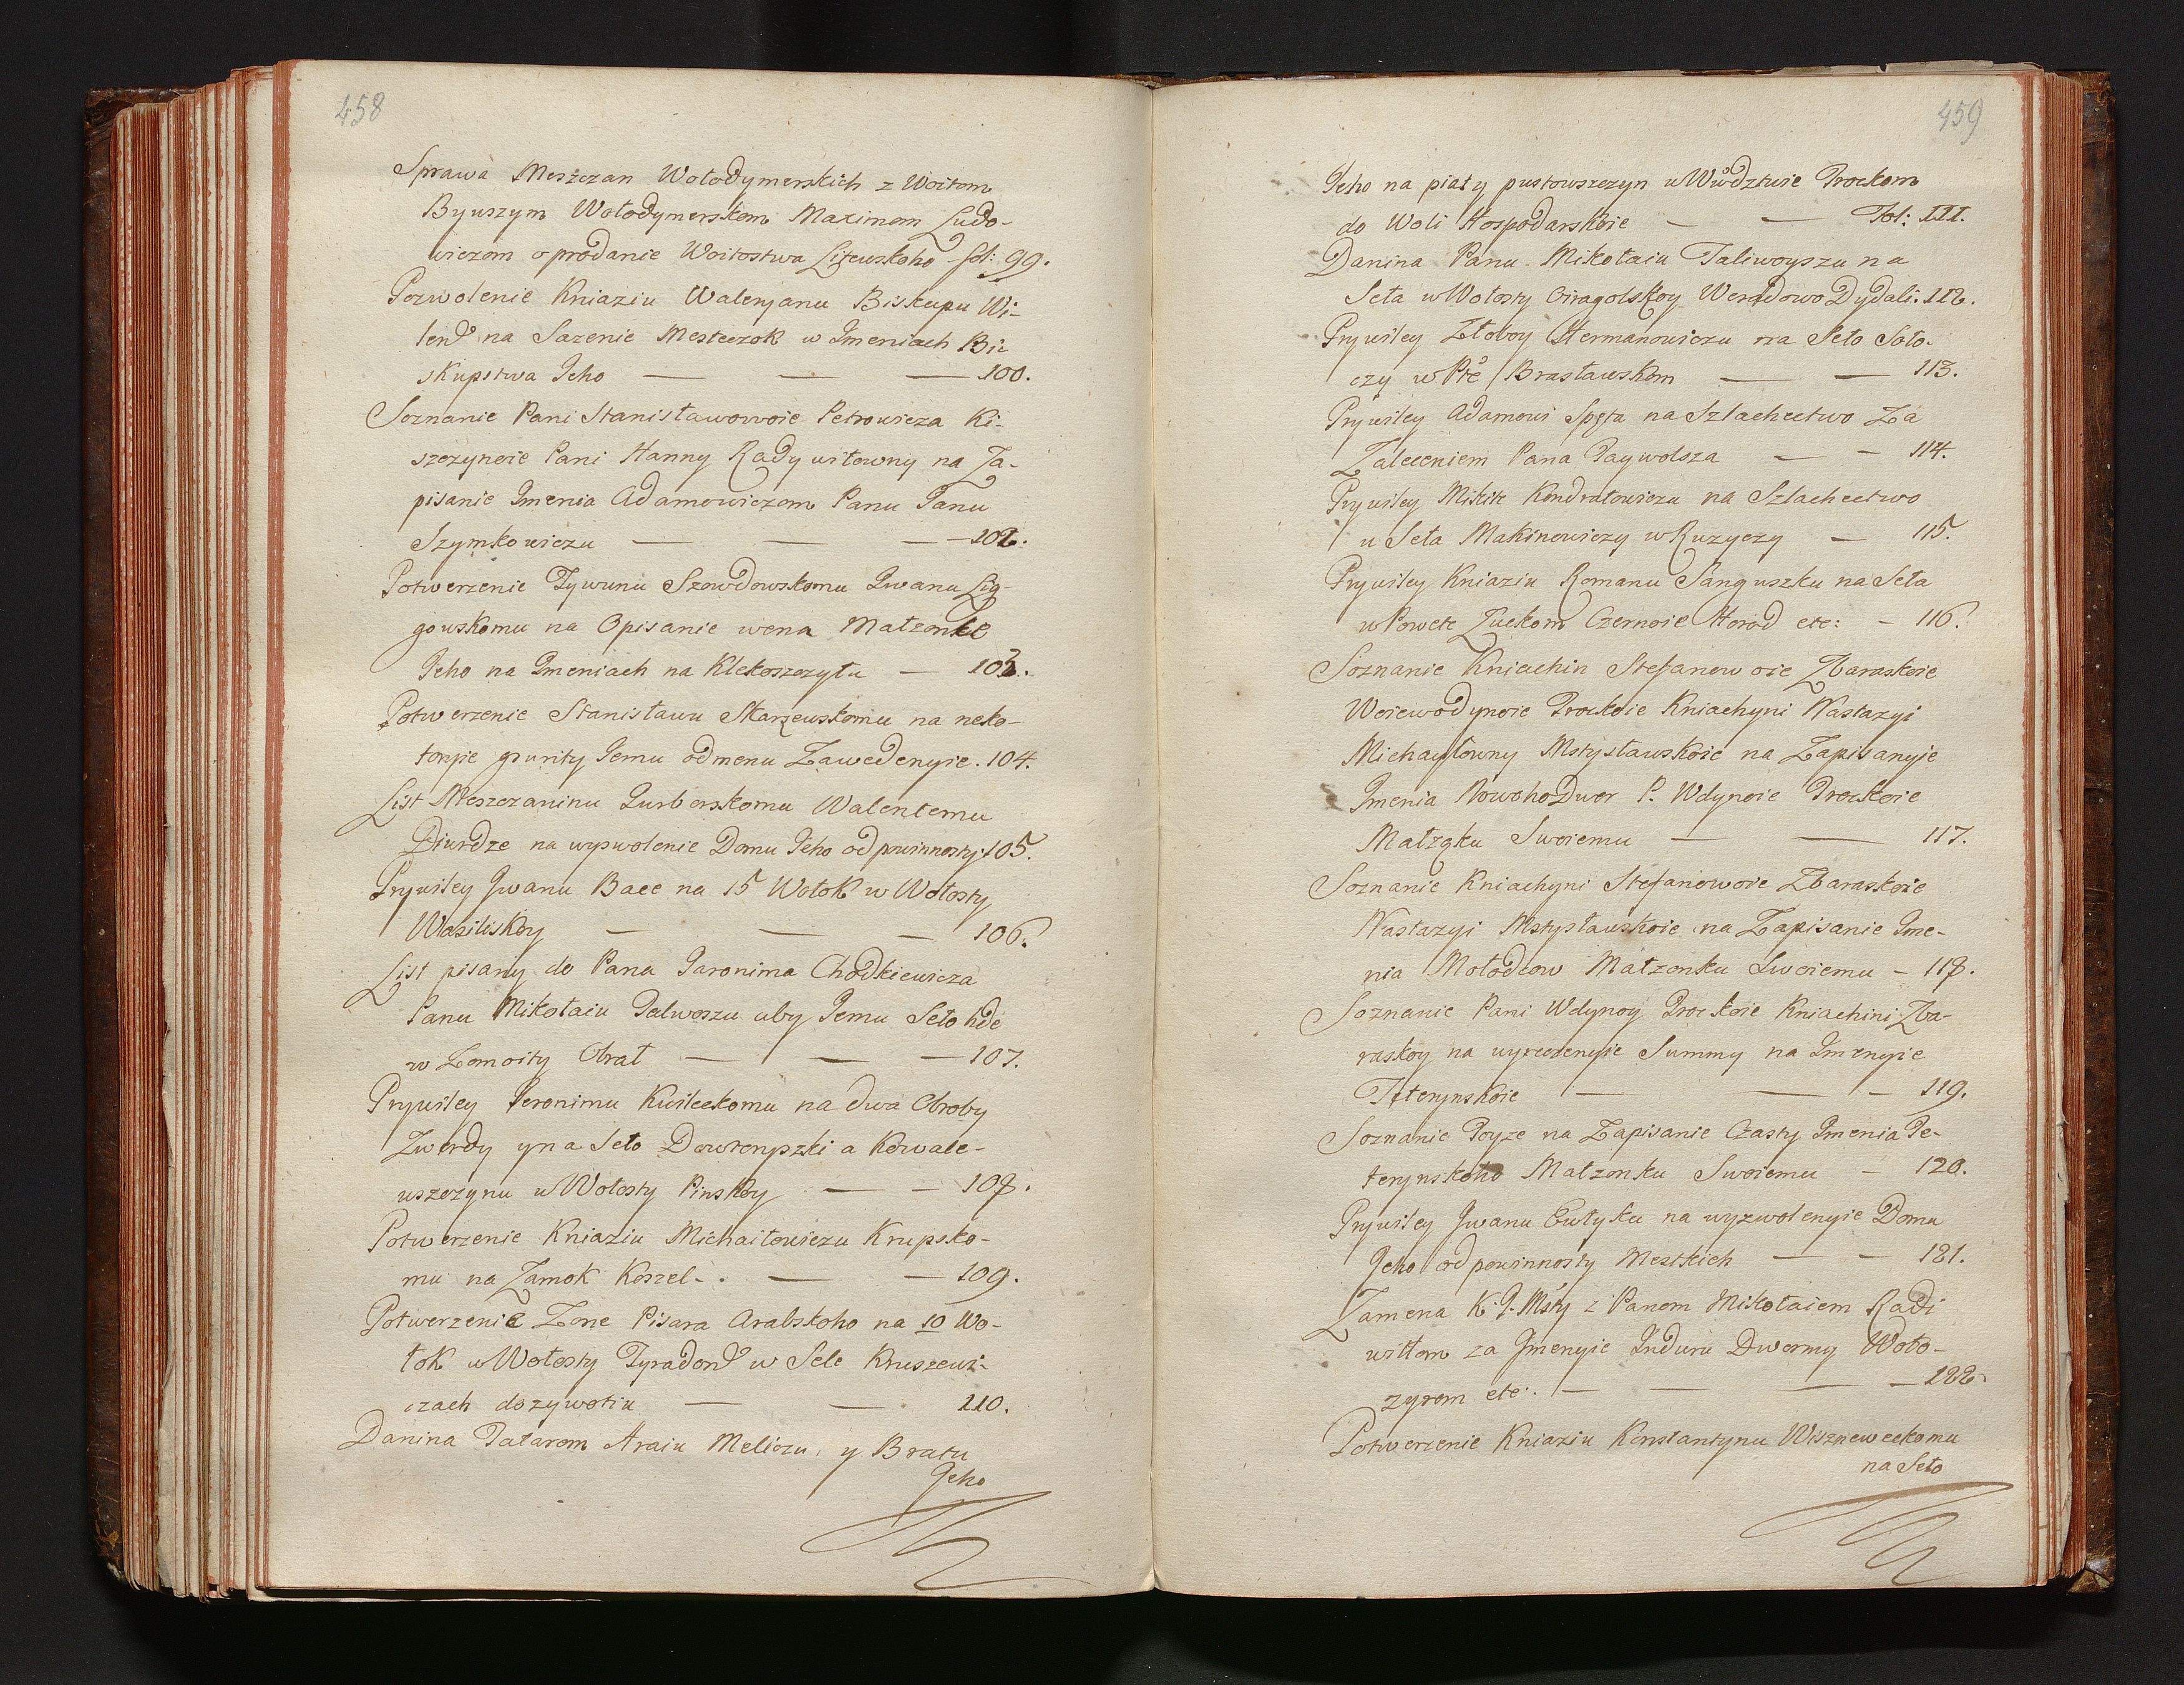 458
Sprawa Meszczan Wołodymerskich z Woitom
Bywszym Wołodymerskom Maximom Ludo-
wiczom o prodanie Woitostwa Litewskoho - fol: 99.
Pozwolenie Kniaziu Waleryanu Biskupu Wi-
len̄ na Sazenie Mesteczok w Imeniach Bi-
skupstwa Jeho — — — 100.
Soznanie Pani Stanisławowoie Petrowicza Ki-
szczynoie Pani Hanny Radywiłowny na Za-
pisanie Imenia Adamowiczom Panu Panu
Szymkowiczu — — — 102.
Potwerzenie Tywunu Szowdowskomu Iwanu Lig-
gowskomu na Opisanie wena Małzonke
Jeho na Imeniach na Klekoszczytu — 103.
Potwerzenie Stanisławu Skarzewskomu na neko-
toryie grunty Jemu odmenu Zawedenyie. 104.
List Meszczaninu Jurborskomu Walentemu
Diurdze na wyzwolenie Domu Jeho od powinnosty. 105.
Prywiley Iwanu Bace na 15 Wołok w Wołosty
Wasiliskoy — — — 106.
List pisany do Pana Jaronima Chodkiewicza
Panu Mikołaiu Talwoszu aby Jemu Seło hde
w Zomoity Obrał — — — 107.
Prywiley Jeronimu Kwileckomu na dwa Obroby
Zwerdy y na Seło Dowrenyszki a Kowale-
uszczynu w Wołosty Pinskoy — — 108.
Potwerzenie Kniaziu Michaiłowiczu Krupsko-
mu na Zamok Koszel-. — — 109.
Potwerzenie Zone Pisara Arabskoho na 10 Wo-
łok w Wołosty Tyradon̄ w Sele Kruszewi-
czach dozywotiu — — 110.
Danina Tatarom Araiu Meliczu, y Bratu
Jeho
459
Jeho na piaty pustowszczyn u Wwdztwie Trockom
do Woli Hospodarskoie — — Fol: 111.
Danina Panu Mikołaiu Taliwoyszu na
Seła w Wołosty Oiragolskoy Werdowo Dydali. 112.
Prywiley Złoboy Hermanowiczu na Seło Soło-
czy w Pte Brasławskom — — 113.
Prywiley Adamowi Spęta na Szlachectwo Za
Zaleceniem Pana Taywolsza — — 114.
Prywiley Mikite Kondratowiczu na Szlachectwo
u Seła Makinowiczy w Ruzyczy — 115.
Prywiley Kniaziu Romanu Sanguszku na Seła
w Powete Łuckom Czernoie Horod etc: — 116.
Soznanie Kniachin Stefanowoie Zbaraskoie
Woiewodynoie Trockoie Kniachyni Nastazyi
Michayłowny Mstysławskoie na Zapisanyie
Imenia Nowoho Dwor P. Wdynoie Trockoie
Małząku Swoiemu — — 117.
Soznanie Kniachyni Stefanowoie Zbaraskoie
Nastazyi Mstysławskoie na Zapisanie Ime-
nia Mołodcow Małzonku Swoiemu — 118.
Soznanie Pani Wdynoy Trockoie Kniachini Zba-
raskoy na wyreczenyie Summy na Imenyie
Teterynskoie — — — 119.
Soznanie Toyze na Zapisanie Czasty Imenia Te-
terynskoho Małzonku Swoiemu — 120.
Prywiley Iwanu Ewtyku na wyzwolenyie Domu
Jeho od powinnosty Mestkich — — 121.
Zamena K. J. Msty z Panom Mikołaiem Radi
wiłłom za Imenyie Induru Dwormy Woło-
zynom etc. — — — 122.
Potwerzenie Kniaziu Konstantynu Wiszneweckomu
na Seło